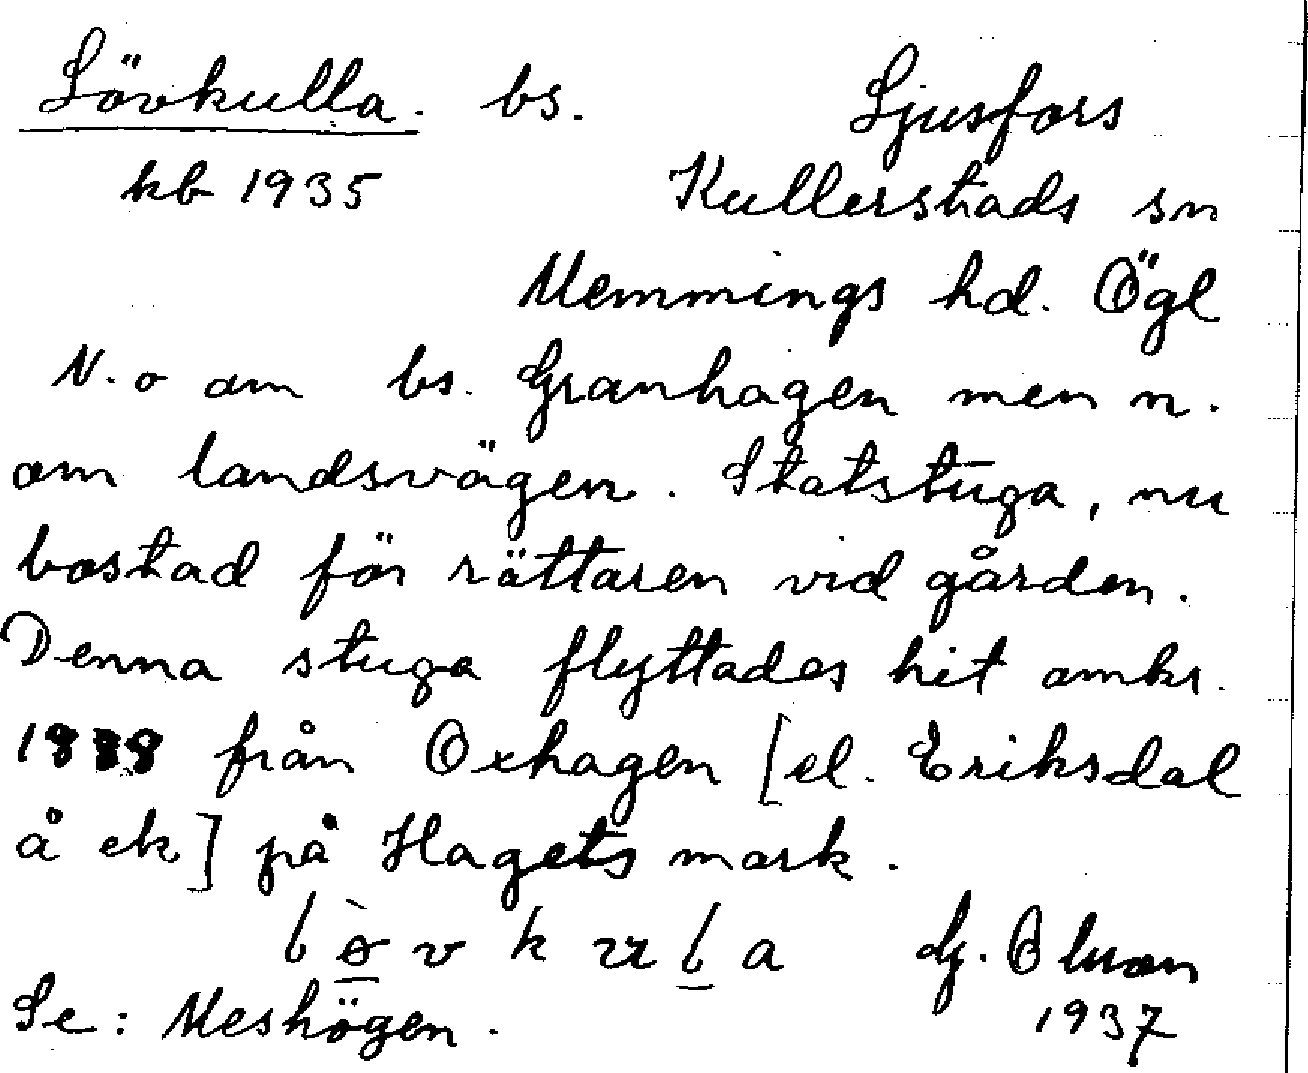 Lövkulla. bs. Ljusfors
kb 1935 Kullerstads sn
Memmings hd. Ögl
N. o om bs. Granhagen men n.
om landsvägen. Statstuga, nu
bostad för rättaren vid gården.
Denna stuga flyttades hit omkr.
1888 från Oxhagen [el. Eriksdal
å ek] på Hagets mark.
a
Se: Meshögen. 1937